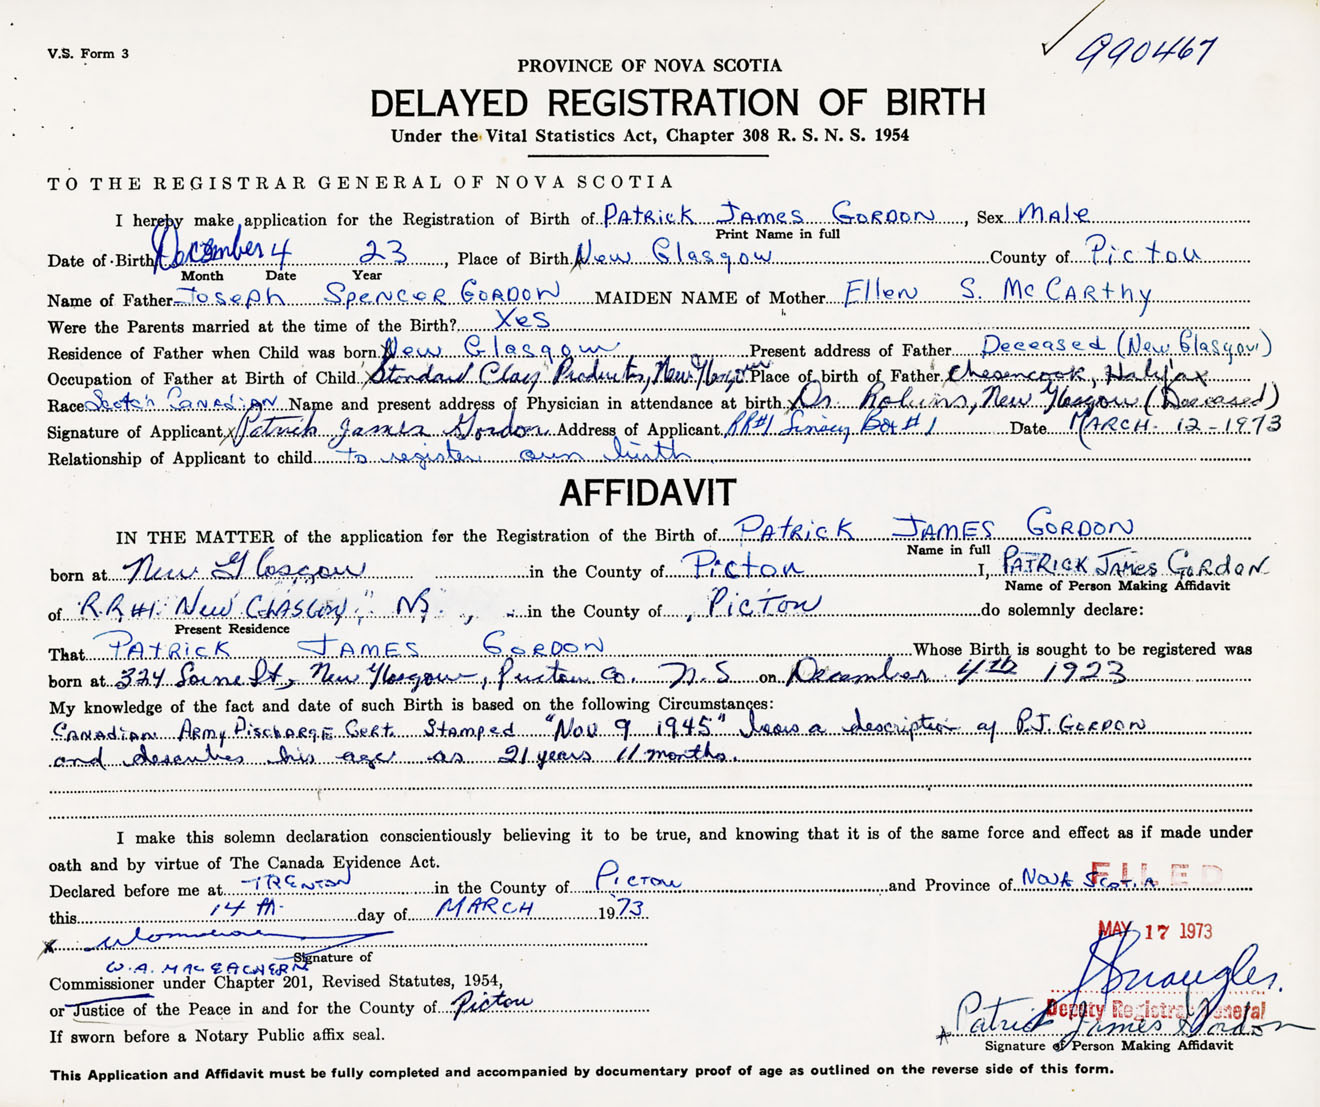 V.S. Form 3
990467
PROVINCE OF NOVA SCOTIA
DELAYED REGISTRATION OF BIRTH
Under the Vital Statistics Act, Chapter 308 R. S. N. S. 1954
TO THE REGISTRAR GENERAL OF NOVA SCOTIA
I hereby make application for the Registration of Birth of PATRICK JAMES GORDON, Sex MALE
Print Name in full
Date of Birth December 4 23, Place of Birth New Glasgow County of Pictou
Month Date Year
Name of Father Joseph Spencer Gordon MAIDEN NAME of Mother Ellen S. McCarthy
Were the Parents married at the time of the Birth? Yes
Residence of Father when Child was born New Glasgow Present address of Father Deceased (New Glasgow)
Occupation of Father at Birth of Child Standard Clay Products, New Glasgow Place of birth of Father Chesencook, Halifax
Race Scotch Canadian Name and present address of Physician in attendance at birth Dr. Robins, New Glasgow (Deceased)
Signature of Applicant X Patrick James Gordon Address of Applicant RR#1 Box #1 Date MARCH 12-1973
Relationship of Applicant to child to register own birth
AFFIDAVIT
IN THE MATTER of the application for the Registration of the Birth of PATRICK JAMES GORDON
Name in full
born at New Glasgow in the County of Picton I, PATRICK JAMES GORDON
Name of Person Making Affidavit
of R.R#1 New Glasgow, NS, in the County of Picton do solemnly declare:
Present Residence
That PATRICK JAMES GORDON Whose Birth is sought to be registered was
born at 324 St, New Glasgow, Pictou Co. N.S on December 4th 1923
My knowledge of the fact and date of such Birth is based on the following Circumstances:
CANADIAN ARMY DISCHARGE Cert. Stamped "Nov 9 1945" bears a description of P.J. GORDON
and describes his age as 21 years 11 months.
I make this solemn declaration conscientiously believing it to be true, and knowing that it is of the same force and effect as if made under
oath and by virtue of The Canada Evidence Act.
Declared before me at TRENTON in the County of Picton and Province of NOVA SCOTIA
FILED
this 14th day of MARCH 1973
MAY 17 1973
X
Signature of
W.A. MACEACHERN
Commissioner under Chapter 201, Revised Statutes, 1954,
or Justice of the Peace in and for the County of Pictou
Deputy Registrar General
Patrick James Gordon
If sworn before a Notary Public affix seal.
Signature of Person Making Affidavit
This Application and Affidavit must be fully completed and accompanied by documentary proof of age as outlined on the reverse side of this form.